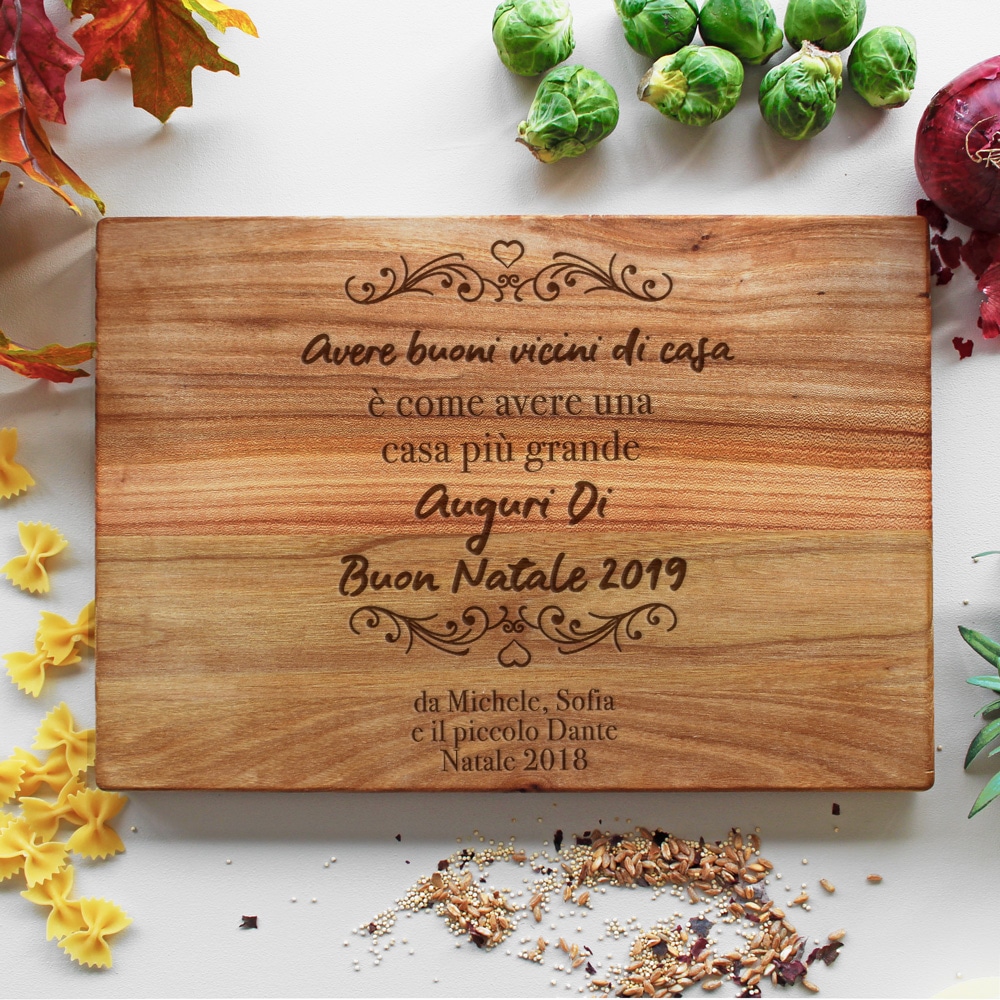 Avere buoni vicini di casa
è come avere una
casa più grande
Auguri Di
Buon Natale 2019
da Michele, Sofia
e il piccolo Dante
Natale 2018